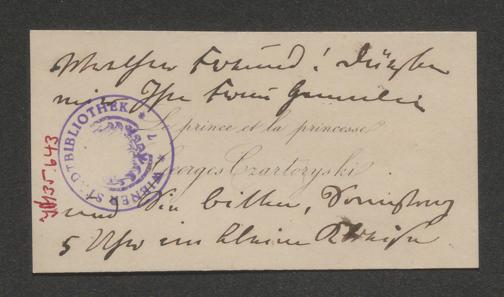 Werther Freund! Dürften
wir Ihre Frau Gemahlin
Le prince et la princesse
Georges Czartoryski
und Sie bitten, Dienstag
5 Uhr im kleinen
WIENER STADTBIBLIOTHEK